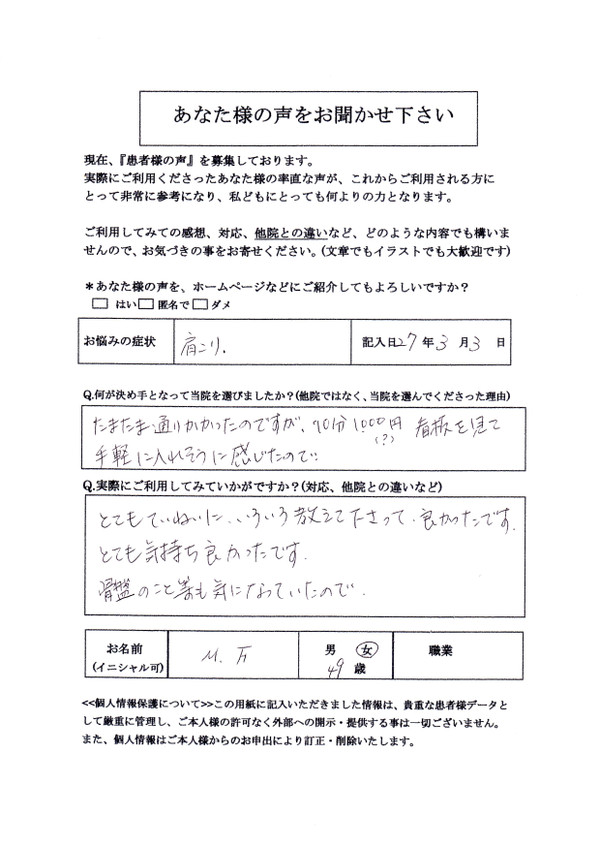 あなた様の声をお聞かせ下さい
現在、『患者様の声』を募集しております。
実際にご利用くださったあなた様の率直な声が、これからご利用される方に
とって非常に参考になり、私どもにとっても何よりの力となります。
ご利用してみての感想、対応、他院との違いなど、どのような内容でも構いま
せんので、お気づきの事をお寄せください。(文章でもイラストでも大歓迎です)
*あなた様の声を、ホームページなどにご紹介してもよろしいですか?
□ はい□ 匿名で□ ダメ
お悩みの症状 肩こり. 記入日27年3月3日
Q.何が決め手となって当院を選びましたか?(他院ではなく、当院を選んでくださった理由)
たまたま通りかかったのですが、70分1000円 看板を見て
(?)
手軽に入れそうに感じたので…
Q.実際にご利用してみていかがですか?(対応、他院との違いなど)
とてもていねいに、いろいろ教えて下さって、良かったです.
とても気持ち良かったです.
骨盤のこと等も気になっていたので.
お名前 M. 男 女 職業
(イニシャル可) 49歳
<<個人情報保護について>>この用紙に記入いただきました情報は、貴重な患者様データと
して厳重に管理し、ご本人様の許可なく外部への開示・提供する事は一切ございません。
また、個人情報はご本人様からのお申出により訂正・削除いたします。